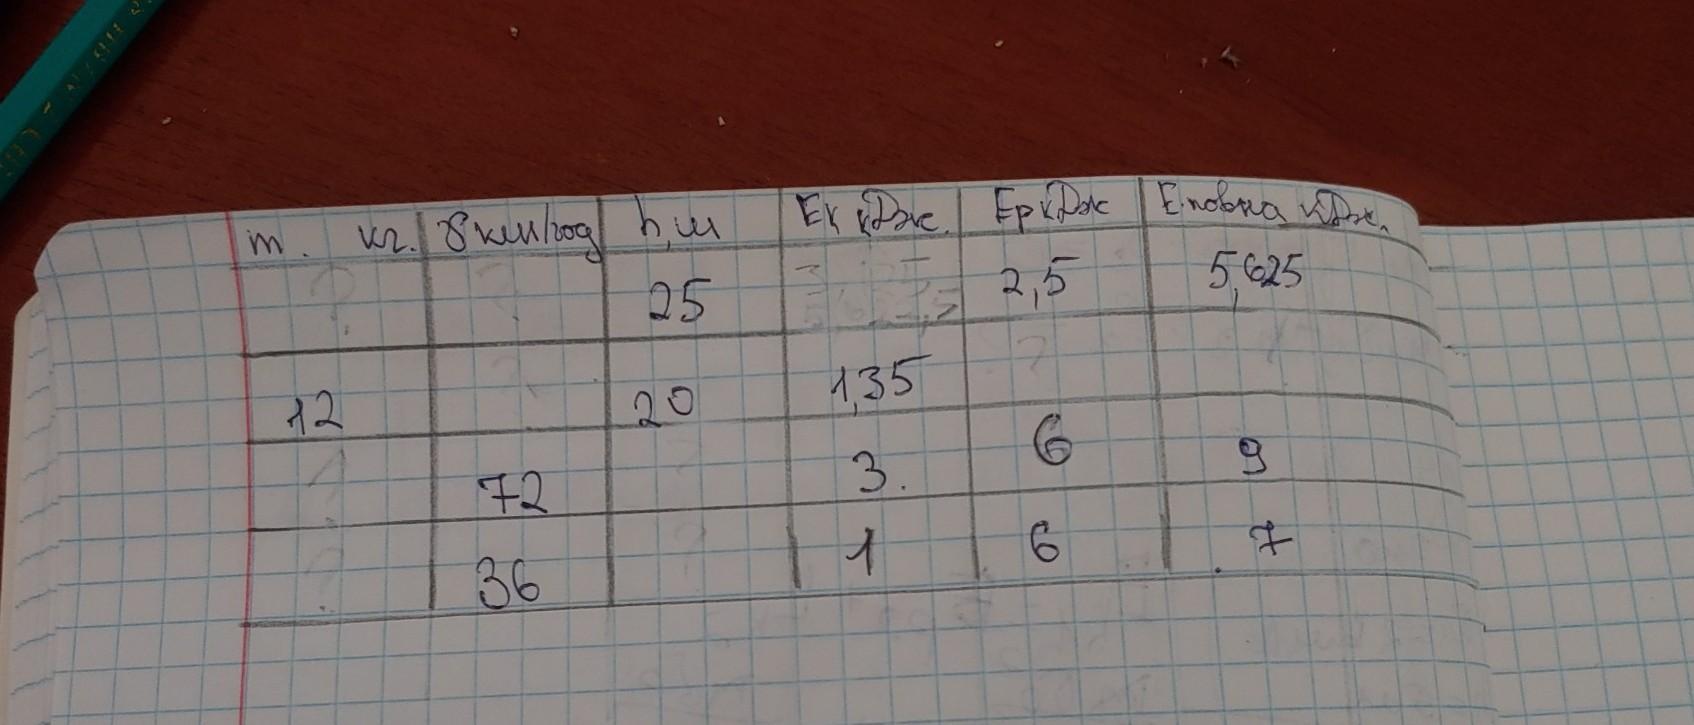 m. кг. υ км/год h, м Eк кДж. Ep кДж E повна кДж.
25 2,5 5,625
12 20 1,35
72 3. 6 9
36 1 6 7